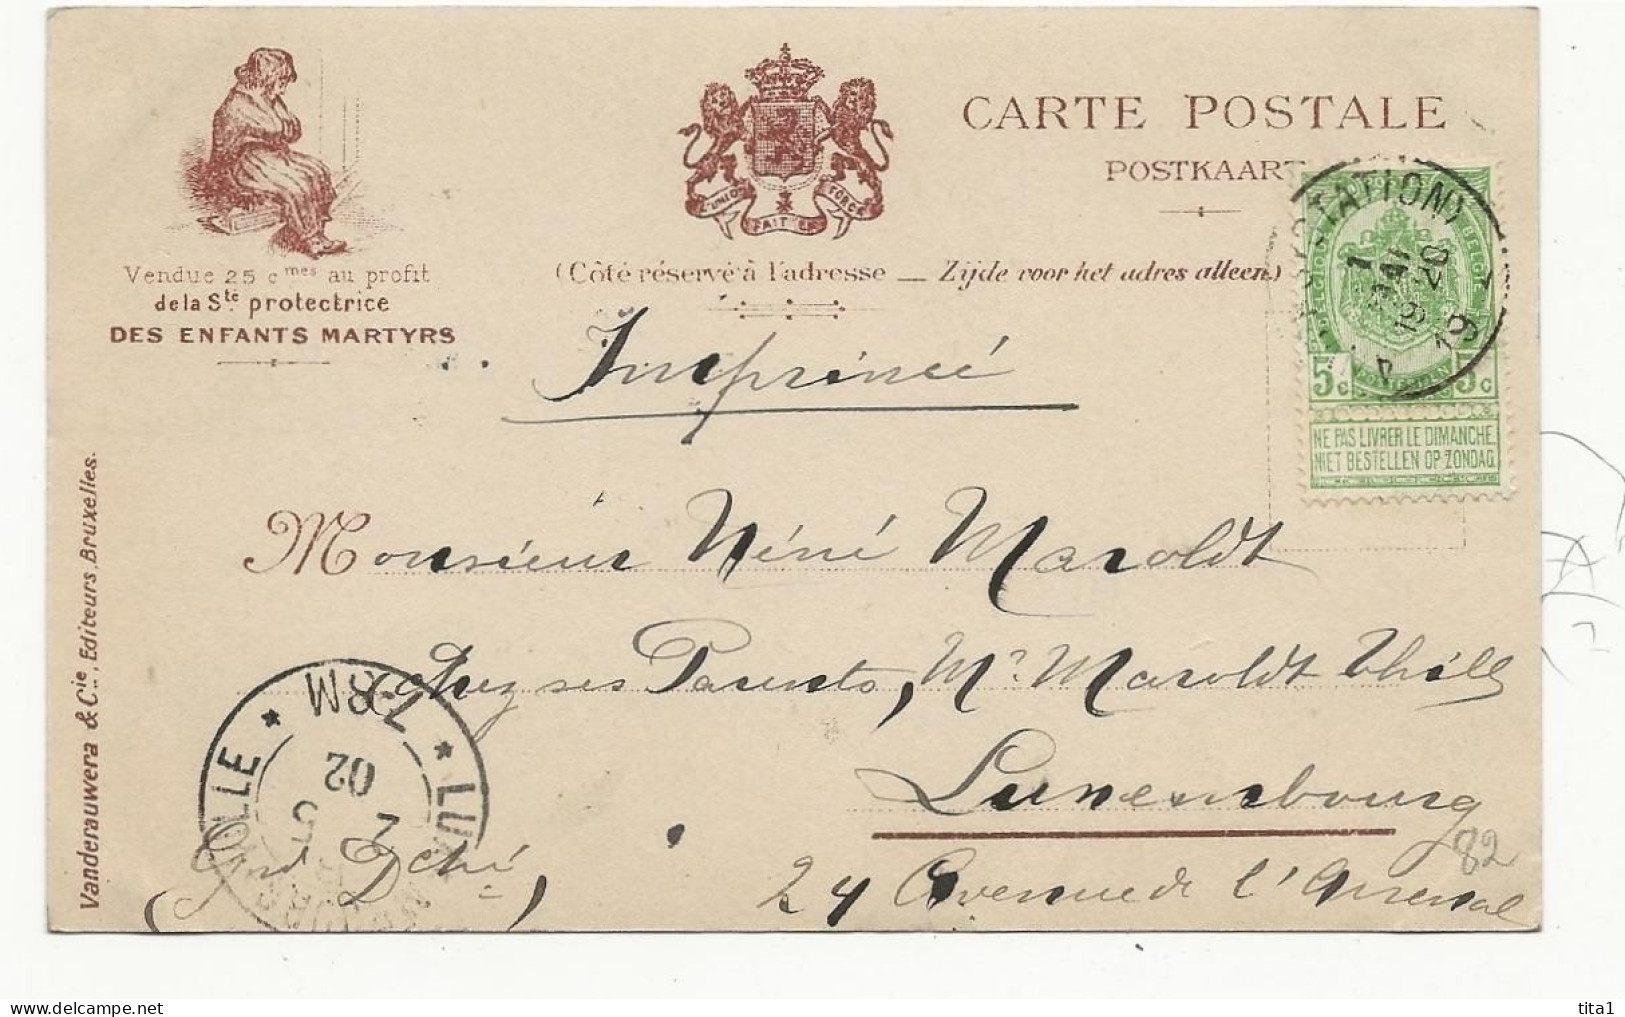 CARTE POSTALE
POSTKAART
L'UNION FAIT LA FORCE
Vendue 25 cmes au profit
de la Sté protectrice
DES ENFANTS MARTYRS
(Côté réservé à l'adresse — Zijde voor het adres alleen)
Imprimé
(STATION)
1
8 20
19
5c 5c
NE PAS LIVRER LE DIMANCHE.
NIET BESTELLEN OP ZONDAG
Monsieur Néné Maroldt
Chez ses Parents, Mr Maroldt Thill
Luxembourg
(Grd Dché)
24 Avenue de l'Arsenal
82
LUXEMBOURG VILLE
7-8M
02
Vanderauwera & Cie, Editeurs, Bruxelles.
tita1